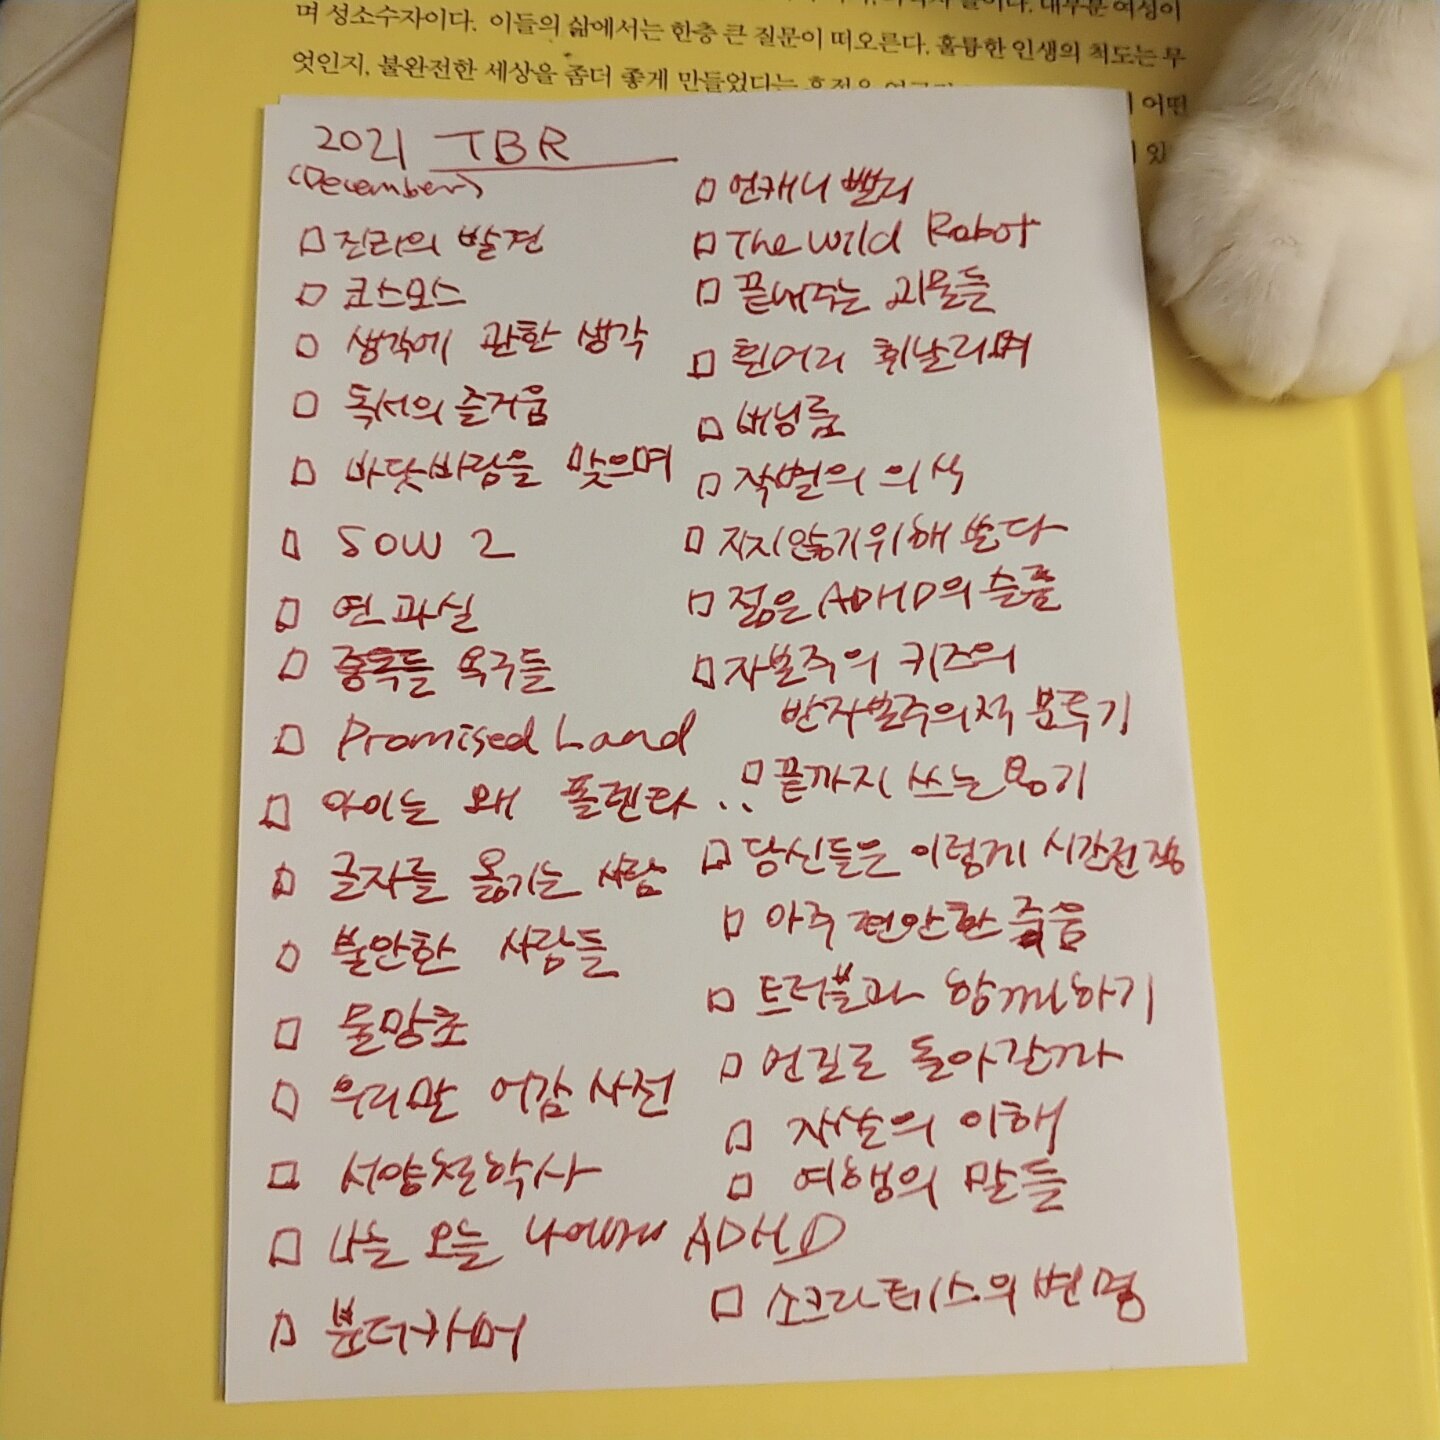 며 성소수자이다. 이들의 삶에서는 한층 큰 질문이 떠오른다. 훌륭한 인생의 척도는 무
엇인지, 불완전한 세상을 좀더 좋게 만들었다는
어떤
2021 TBR
(December)
진리의 발견
코스모스
생각에 관한 생각
독서의 즐거움
바닷바람을 맞으며
SOW 2
연과실
중독들 욕구들
Promised Land
아이는 왜 폴렌타..
글자를 옮기는 사람
불안한 사람들
물망초
우리말 어감 사전
서양철학사
나는 오늘 나에게 ADHD
분더카머
언캐니 밸리
The Wild Robot
끝내주는 괴물들
흰머리 휘날리며
버닝룸
작별의 의식
지지않기위해 쓴다
젊은 ADHD의 슬픔
자본주의 키즈의
반자본주의적 분투기
끝까지 쓰는 용기
당신들은 이렇게 시간전쟁
아주 편안한 죽음
트러블과 함께하기
먼길로 돌아갈까
자살의 이해
여행의 말들
소크라테스의 변명